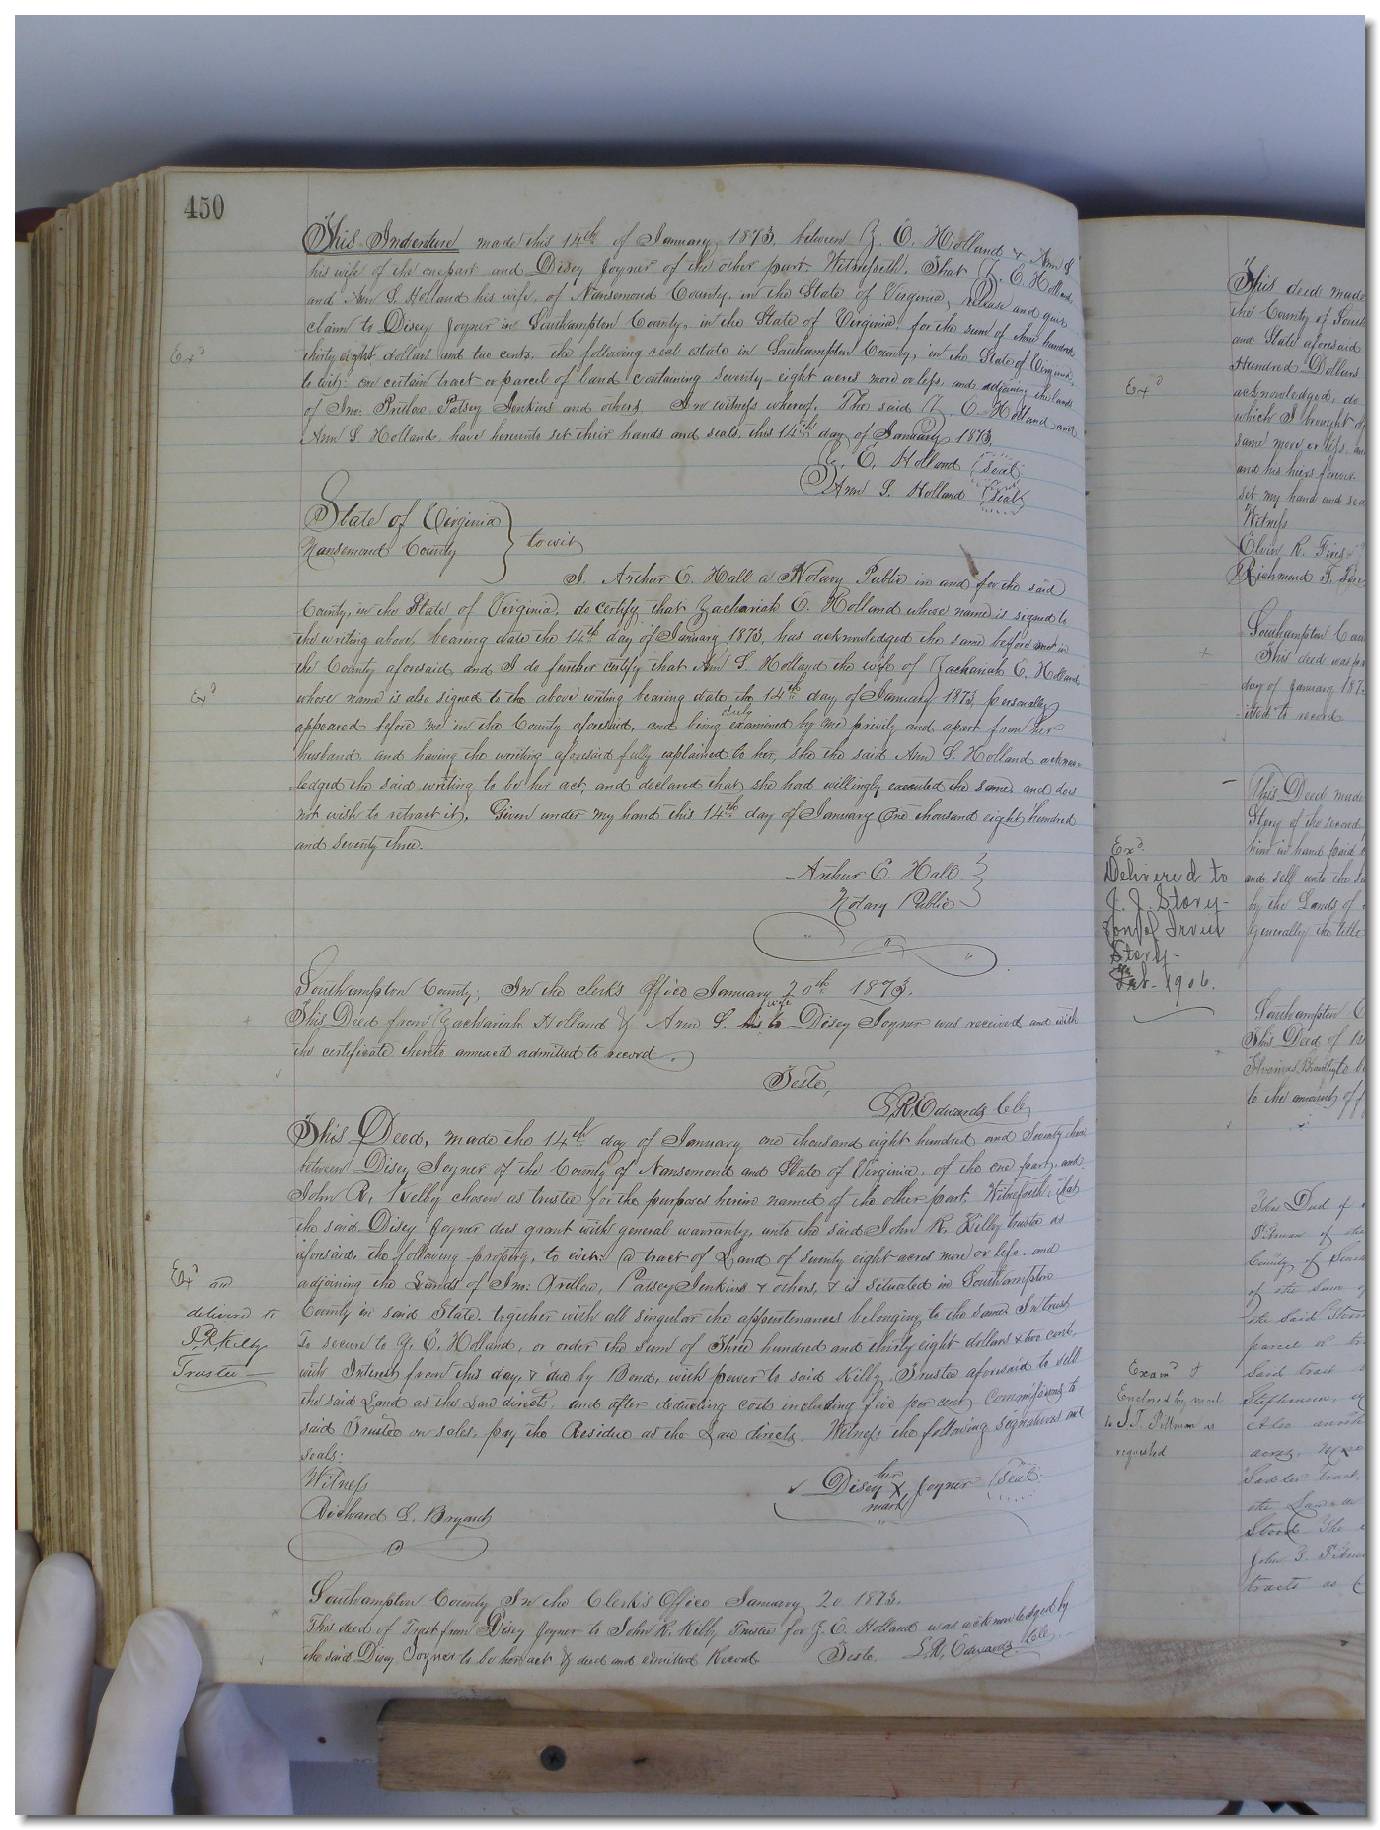 450
This Indenture made this 14th of January, 1873, between Z. E. Holland & Ann S
his wife of the onepart and Disey Joyner of the other part. Witnesseth. That Z. E. Holland,
and Ann S. Holland his wife, of Nansemond County, in the State of Virginia, release and quit
claim to Disey Joyner in Southampton County, in the State of Virginia, for the sum of three hundred
thirty eight dollars and two cents, the following real estate in Southampton County, in the State of Virginia,
Exd
to wit: one certain tract or parcel of land containing seventy-eight acres more or less, and adjoining the lands
of Jno: Patsey Jenkins and others. In witness whereof. The said Z. E. Holland and
Ann S. Holland, have hereunto set their hands and seals, this 14th day of January 1873.
Z. E. Holland (Seal)
Ann S. Holland (Seal)
State of Virginia
Nansemond County } to wit
I. Archer E. Hall a Notary Public in and for the said
County, in the State of Virginia, do certify that Zachariah E. Holland whose name is signed to
the writing above, bearing date the 14th day of January 1873, has acknowledged the same before me in
the County aforesaid, and I do further certify that Ann S. Holland the wife of Zachariah E. Holland
Exd
whose name is also signed to the above writing bearing date the 14th day of January 1873, personally
appeared before me in the County aforesaid, and being duly examined by me privily and apart from her
husband, and having the writing aforesaid fully explained to her, she the said Ann S. Holland acknow-
-ledged the said writing to be her act, and declared that she had willingly executed the same and does
not wish to retract it. Given under my hand this 14th day of January One thousand eight hundred
and seventy three.
Archer E. Hall
Notary Public
Southampton County; In the clerk's Office January 20th 1873.
This Deed from Zachariah Holland & Ann S. his wife to Disey Joyner was received and with
the certificate thereto annexed admitted to record.
Teste,
L. R. Edwards Clk,
This Deed, made the 14th day of January one thousand eight hundred and Seventy three
between Disey Joyner of the County of Nansemond and State of Virginia, of the one part, and
John R. Kelby chosen as trustee for the purposes herein named of the other part. Witnesseth: That
the said Disey Joyner does grant with general warranty, unto the said John R. Kilby trustee as
aforesaid, the following property, to wit: a tract of Land of seventy eight acres more or less. and
Exd an
delivered to
J. R. Kilby
Trustee
adjoining the Lands of Jno: Patsey Jenkins & others, & is situated in Southampton
County in said State, together with all singular the appurtenances belonging to the same In trust
To secure to Z. E. Holland, or order the sum of Three hundred and thirty eight dollars & two cents,
with Interest from this day, & due by Bond, with power to said Kilby, Trustee aforesaid to sell
the said Land as the Law directs, and after deducting costs including five per cent Commissions to
said Trustee on sales, pay the Residue as the Law directs. Witness the following signatures and
seals:
Witness
Richard S. Bryant
Disey her X mark Joyner (Seal)
Southampton County In the Clerk's Office January 20 1873.
This deed of Trust from Disey Joyner to John R. Kilby Trustee for Z. E. Holland was acknowledged by
the said Disey Joyner to be her act & deed and admitted Record. Teste. L. R. Edwards Clk.
This deed made
the County of South
and State aforesaid
Hundred Dollars
Exd
acknowledged, do
which I bought of
same more or less, an
and his heirs forever.
set my hand and sea
Witness
Elvin R.
Richmond F.
Southampton Cou
This deed was
day of January 187
itted to record
This Deed made
Story of the second
him in hand paid
Exd
Delivered to
J. J. Story-
son of
Story-
Feb- 1906.
and sell unto the
by the Lands of
generally the title
Southampton C
This Deed of
to be
to the amount of
This Deed of
of the
County of South
of the Sum
the said
parcel or tr
Said tract
Stephenson,
Also another
acres, More
tract,
the Land
Stood The
John F.
tracts as
Examd &
Enclosed by mail
to J. T. Pittman as
requested